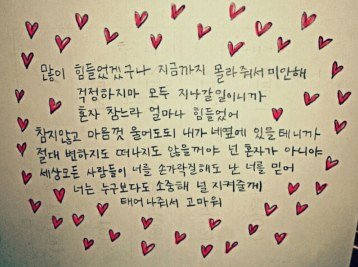 많이 힘들었겠구나 지금까지 몰라줘서 미안해
걱정하지마 모두 지나갈일이니까
혼자 참느라 얼마나 힘들었어
참지않고 마음껏 울어도되 내가 네곁에 있을테니까
절대 변하지도 떠나지도 않을꺼야 넌 혼자가 아니야
세상모든 사람들이 너를 손가락질해도 난 너를 믿어
너는 누구보다도 소중해 널 지켜줄게
태어나줘서 고마워